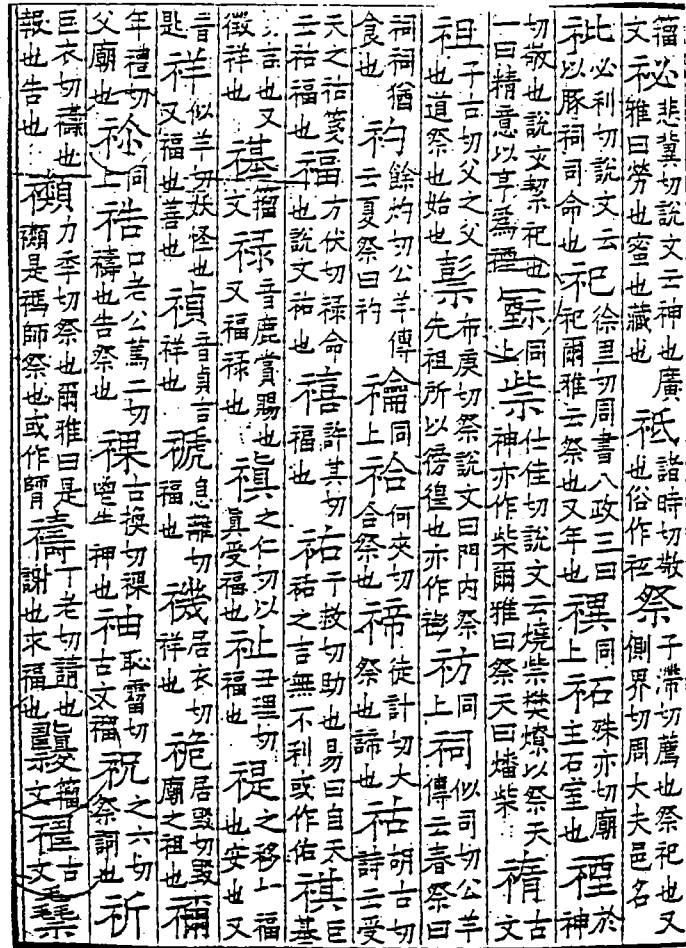 籀文祕悲冀切說文云神也廣雅曰勞也蜜也藏也祗諸時切敬也俗作秖祭子滯切薦也祭祀也又側界切周大夫邑名
必利切說文云以豚祠司命也祀徐里切周書八政三曰祀爾雅云祭也又年也禩同上祏殊亦切廟主石室也禋於神
切敬也說文絜祀也一曰精意以享爲禋同上祡仕佳切說文云燒柴燓燎以祭天神亦作柴爾雅曰祭天曰燔柴古文
祖子古切父之父也道祭也始也布庚切祭說文曰門內祭先祖所以徬徨也亦作祊同上祠似司切公羊傳云春祭曰
祠祠猶食也礿餘灼切公羊傳云夏祭曰礿禴同上祫何夾切合祭也禘徒計切大祭也諦也祜胡古切詩云受
天之祜箋云祜福也福方伏切祿命也說文祐也禧許其切福也祐于救切助也易曰自天祐之言無不利或作佑祺巨基
言也又徵祥也禥籀文禄音鹿賞賜也又福禄也禛之仁切以眞受福也祉丑理切福也禔之移上福也安也又
音匙祥似羊切妖怪也又福也善也禎音貞言祥也禠息離切福也禨居衣切祥也祪居毀切毀廟之祖也禰
年禮切父廟也祢同上祰口老公篤二切禱也告祭也祼古換切祼鬯神也䄂恥霤切古文祝之六切祭詞也祈
巨衣切禱也報也告也禷力季切祭也爾雅曰是禷是禡師祭也或作禱丁老切請也謝也求福也籀文古文禜